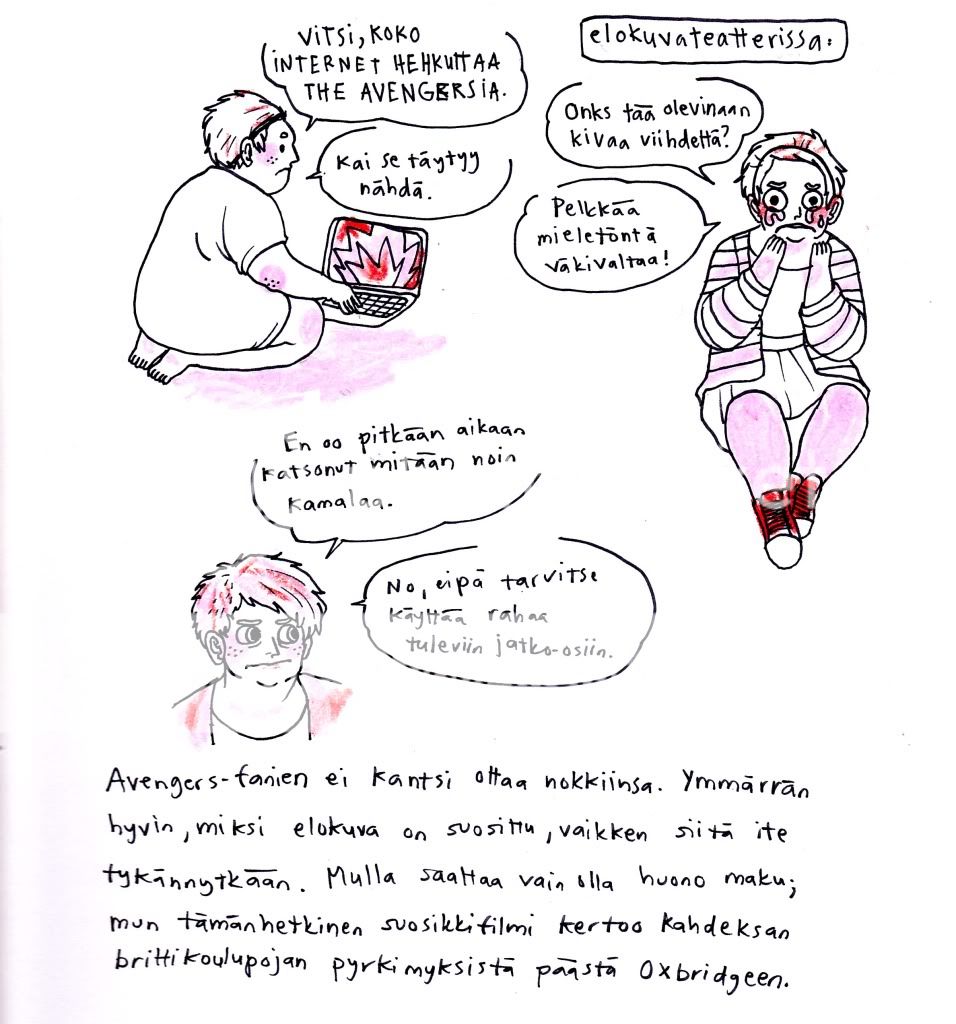 VITSI, KOKO
INTERNET HEHKUTTAA
THE AVENGERSIA.
Kai se täytyy
nähdä.
elokuvateatterissa:
Onks tää olevinaan
kivaa viihdettä?
Pelkkää
mieletöntä
väkivaltaa!
En oo pitkään aikaan
katsonut mitään noin
kamalaa.
No, eipä tarvitse
käyttää rahaa
tuleviin jatko-osiin.
Avengers-fanien ei kantsi ottaa nokkiinsa. Ymmärrän
hyvin, miksi elokuva on suosittu, vaikken siitä ite
tykännytkään. Mulla saattaa vain olla huono maku;
mun tämänhetkinen suosikkifilmi kertoo kahdeksan
brittikoulupojan pyrkimyksistä päästä Oxbridgeen.